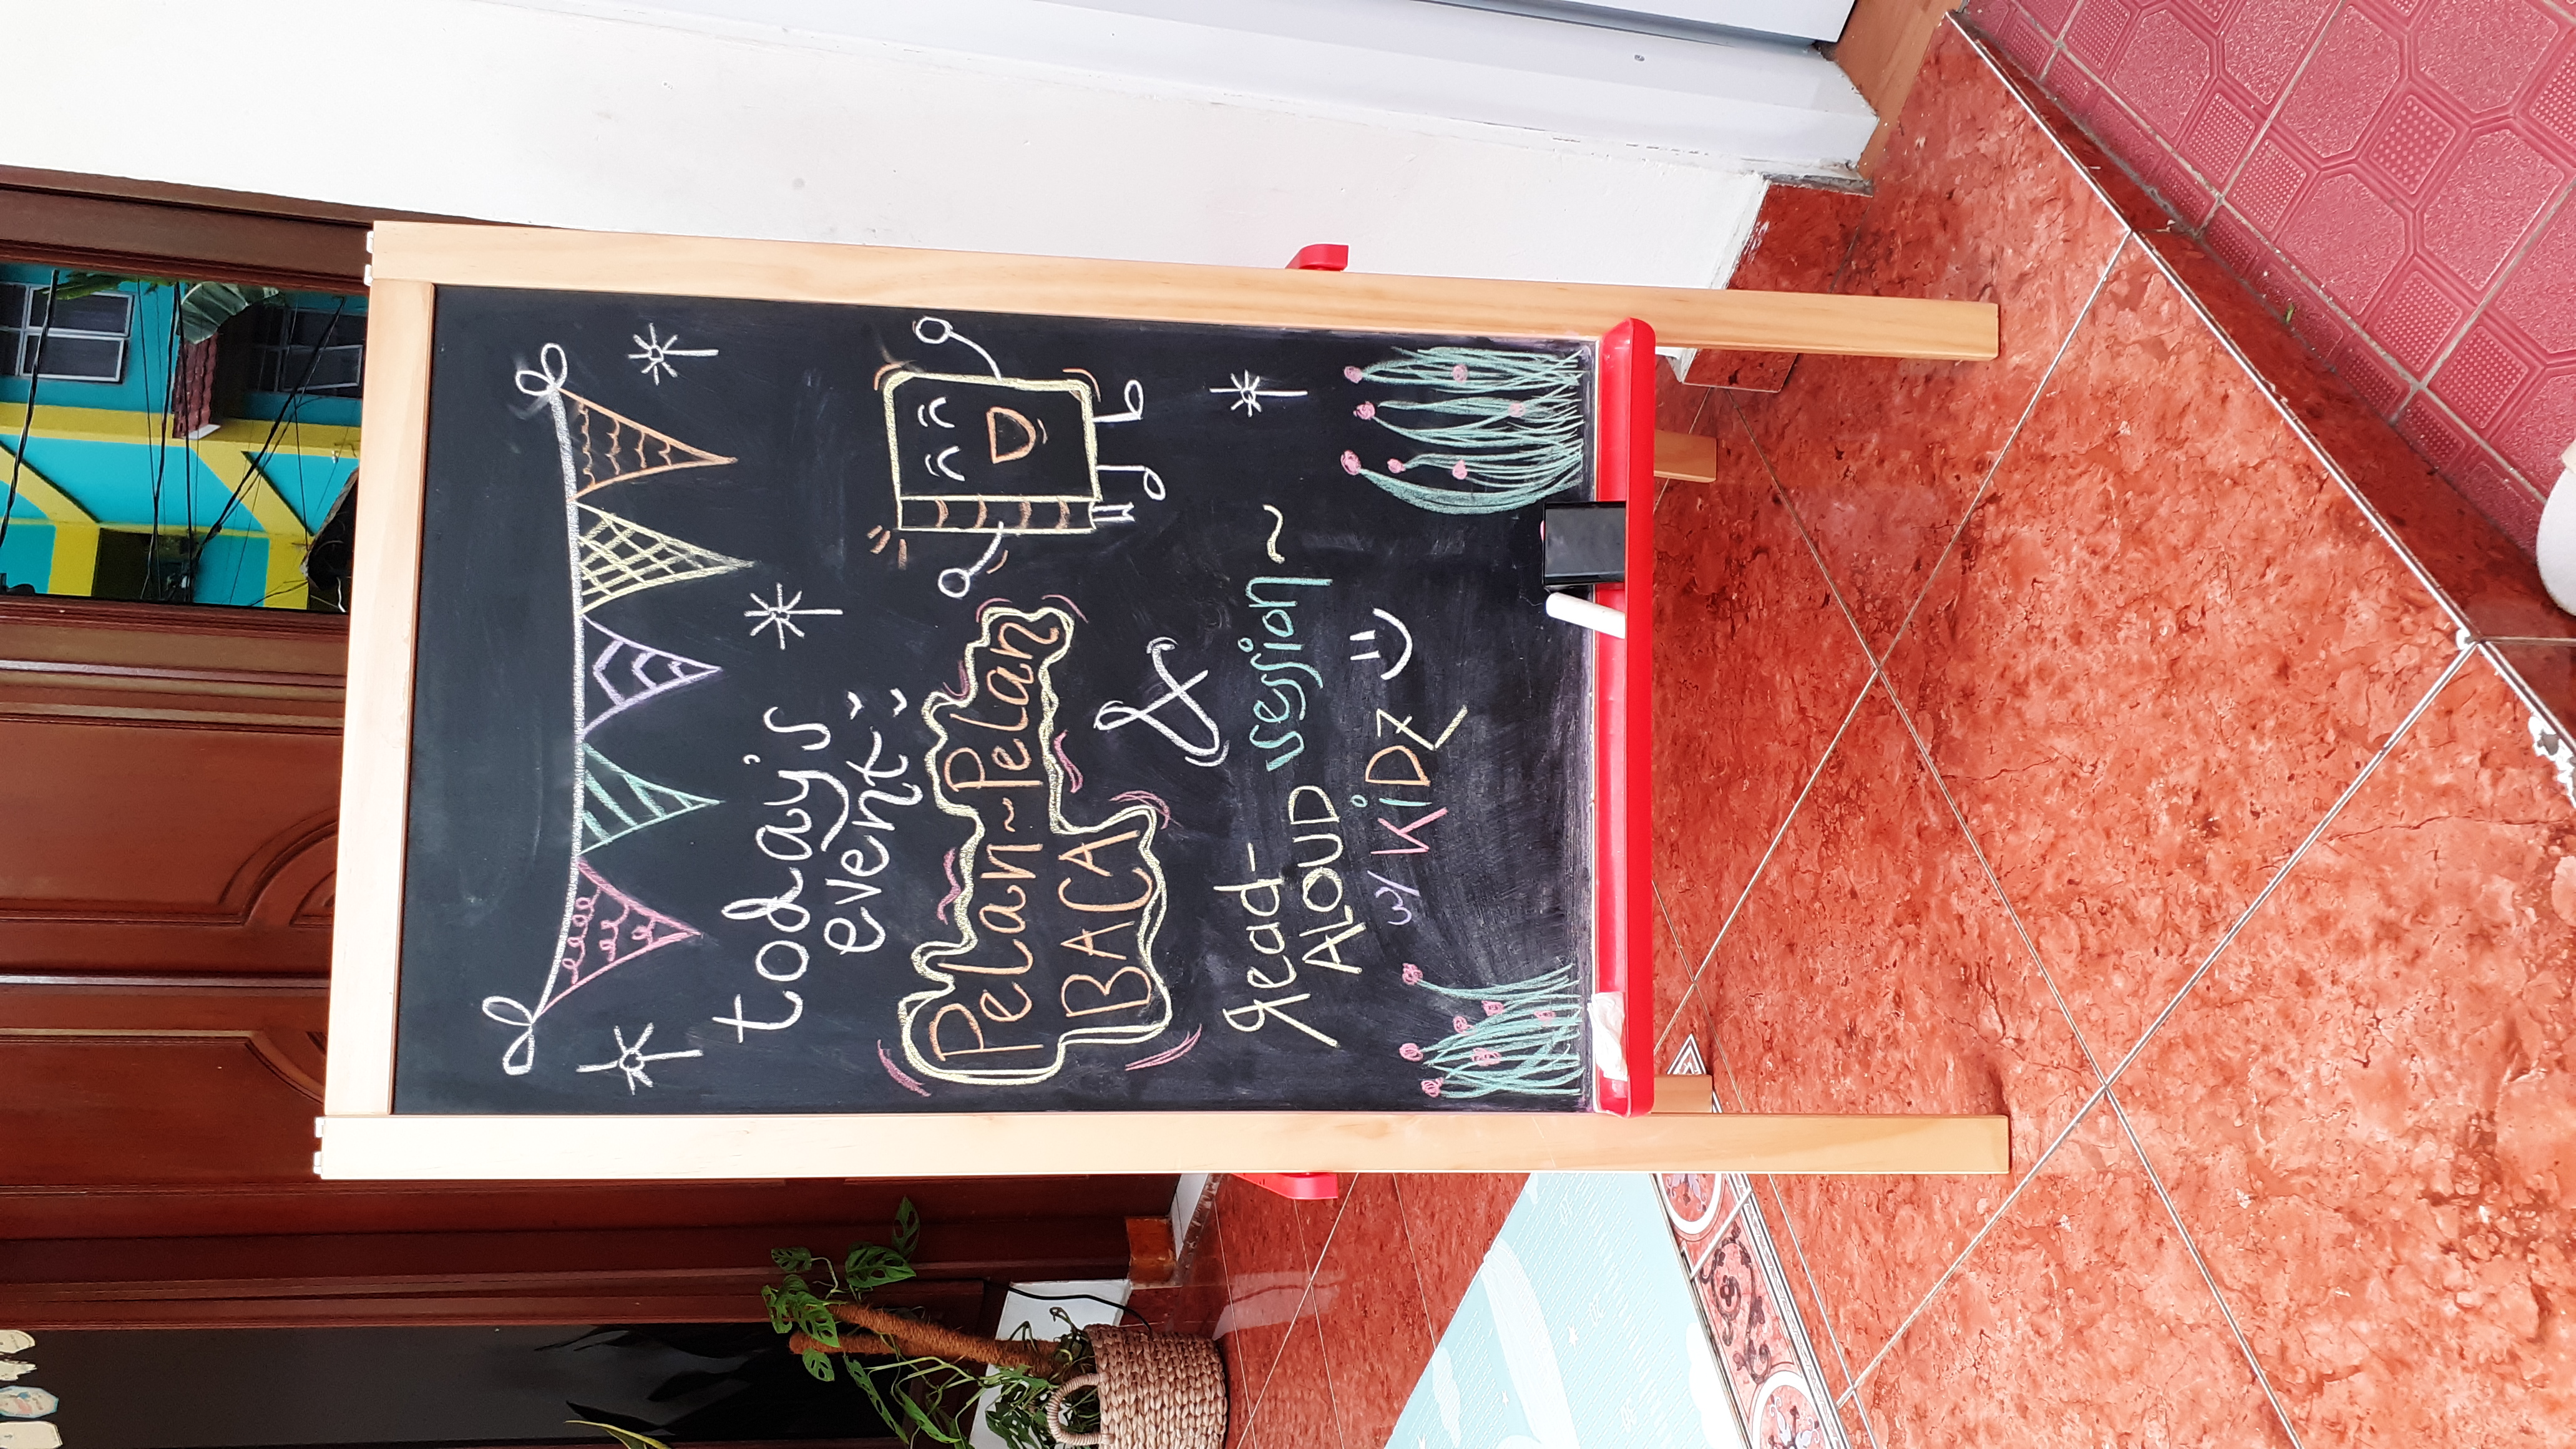 today's
event:
Pelan~Pelan
BACA
&
read-
ALOUD session ~
w/ KiDZ